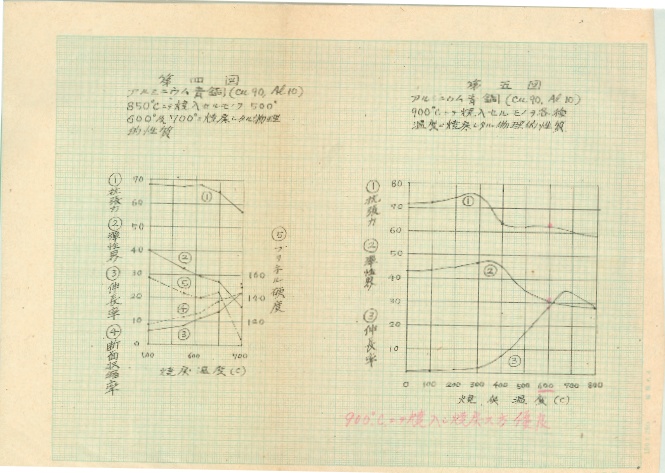 第四図
アルミニウム青銅(Cu 90, Al 10)
850°Cニテ焼入セルモノヲ500°
600°及700°ニ焼戻シタル物理
的性質
① 抗張力
② 弾性界
③ 伸長率
④ 断面収縮率
⑤ ブリネル硬度
70
60
50
40
30
20
10
0
160
140
120
①
②
⑤
④
③
600
700
焼戻温度(C)
第五図
アルミニウム青銅(Cu 90, Al 10)
900°Cニテ焼入セルモノヲ各種
温度ニ焼戻シタル物理的性質
① 抗張力
② 弾性界
③ 伸長率
80
70
60
50
40
30
20
10
①
②
③
0 100 200 300 400 500 600 700 800
焼戻温度(C)
900°Cニテ焼入シ焼戻ス方優良